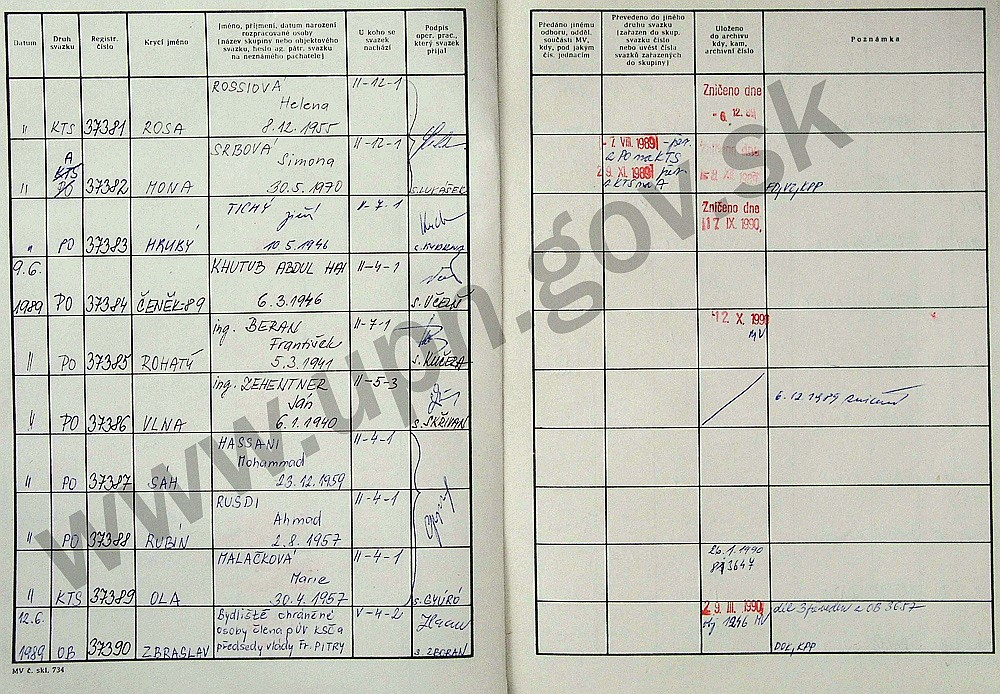 Datum
Druh svazku
Registr. číslo
Krycí jméno
Jméno, příjmení, datum narození
rozpracované osoby
(název skupiny nebo objektového
svazku, heslo ag. pátr. svazku
na neznámého pachatele)
U koho se
svazek
nachází
Podpis
oper. prac.,
který svazek
přijal
Předáno jinému
odboru, odděl.
součásti MV,
kdy, pod jakým
čís. jednacím
Převedeno do jiného
druhu svazku
(zařazen do skup.
svazku číslo
nebo uvést čísla
svazků zařazených
do skupiny)
Uloženo
do archivu
kdy, kam,
archivní číslo
Poznámka
ROSSIOVÁ II-12-1
Helena
" KTS 37381 ROSA 8.12.1955
Zničeno dne
-6. 12. 89
SRBOVÁ II-12-1
A Simona
KTS
" PO 37382 MONA 30.5.1970 s. LUKÁŠEK
-7. VIII. 1989 - per.
z PO na KTS
29. XI. 1989 per.
z KTS na A
TICHÝ II-7-1
Jiří
" PO 37383 HRUBÝ 10.5.1946
Zničeno dne
17. IX. 1990
9.6. KHUTUB ABDUL HAI II-4-1
1989 PO 37384 ČENĚK-89 6.3.1946 s. VČELNÝ
ing. BERAN II-7-1
František
" PO 37385 ROHATÝ 5.3.1941 s. KUČERA
12. X. 1990
MV
ing. ZEHENTNER II-5-3
Ján
" PO 37386 VLNA 6.1.1940 s. SKŘIVAN
6.12.1989 zničení
HASSANI II-4-1
Mohammad
" PO 37387 ŠÁH 23.12.1959
RUŠDI II-4-1
Ahmad
" PO 37388 RUBÍN 2.8.1957
MALAČKOVÁ II-4-1
Marie
" KTS 37389 OLA 30.4.1957 s. GYÜRÖ
26.1.1990
12.6. Bydliště chráněné V-4-2
osoby člena PÚV KSČ a
předsedy vlády Fr. PITRY
1989 OB 37390 ZBRASLAV s. ZBORAN
29. III. 1990 díl 3 převeden z OB 3657
obj 1246 MV
DOK, KPP
MV č. skl. 734
www.upn.gov.sk